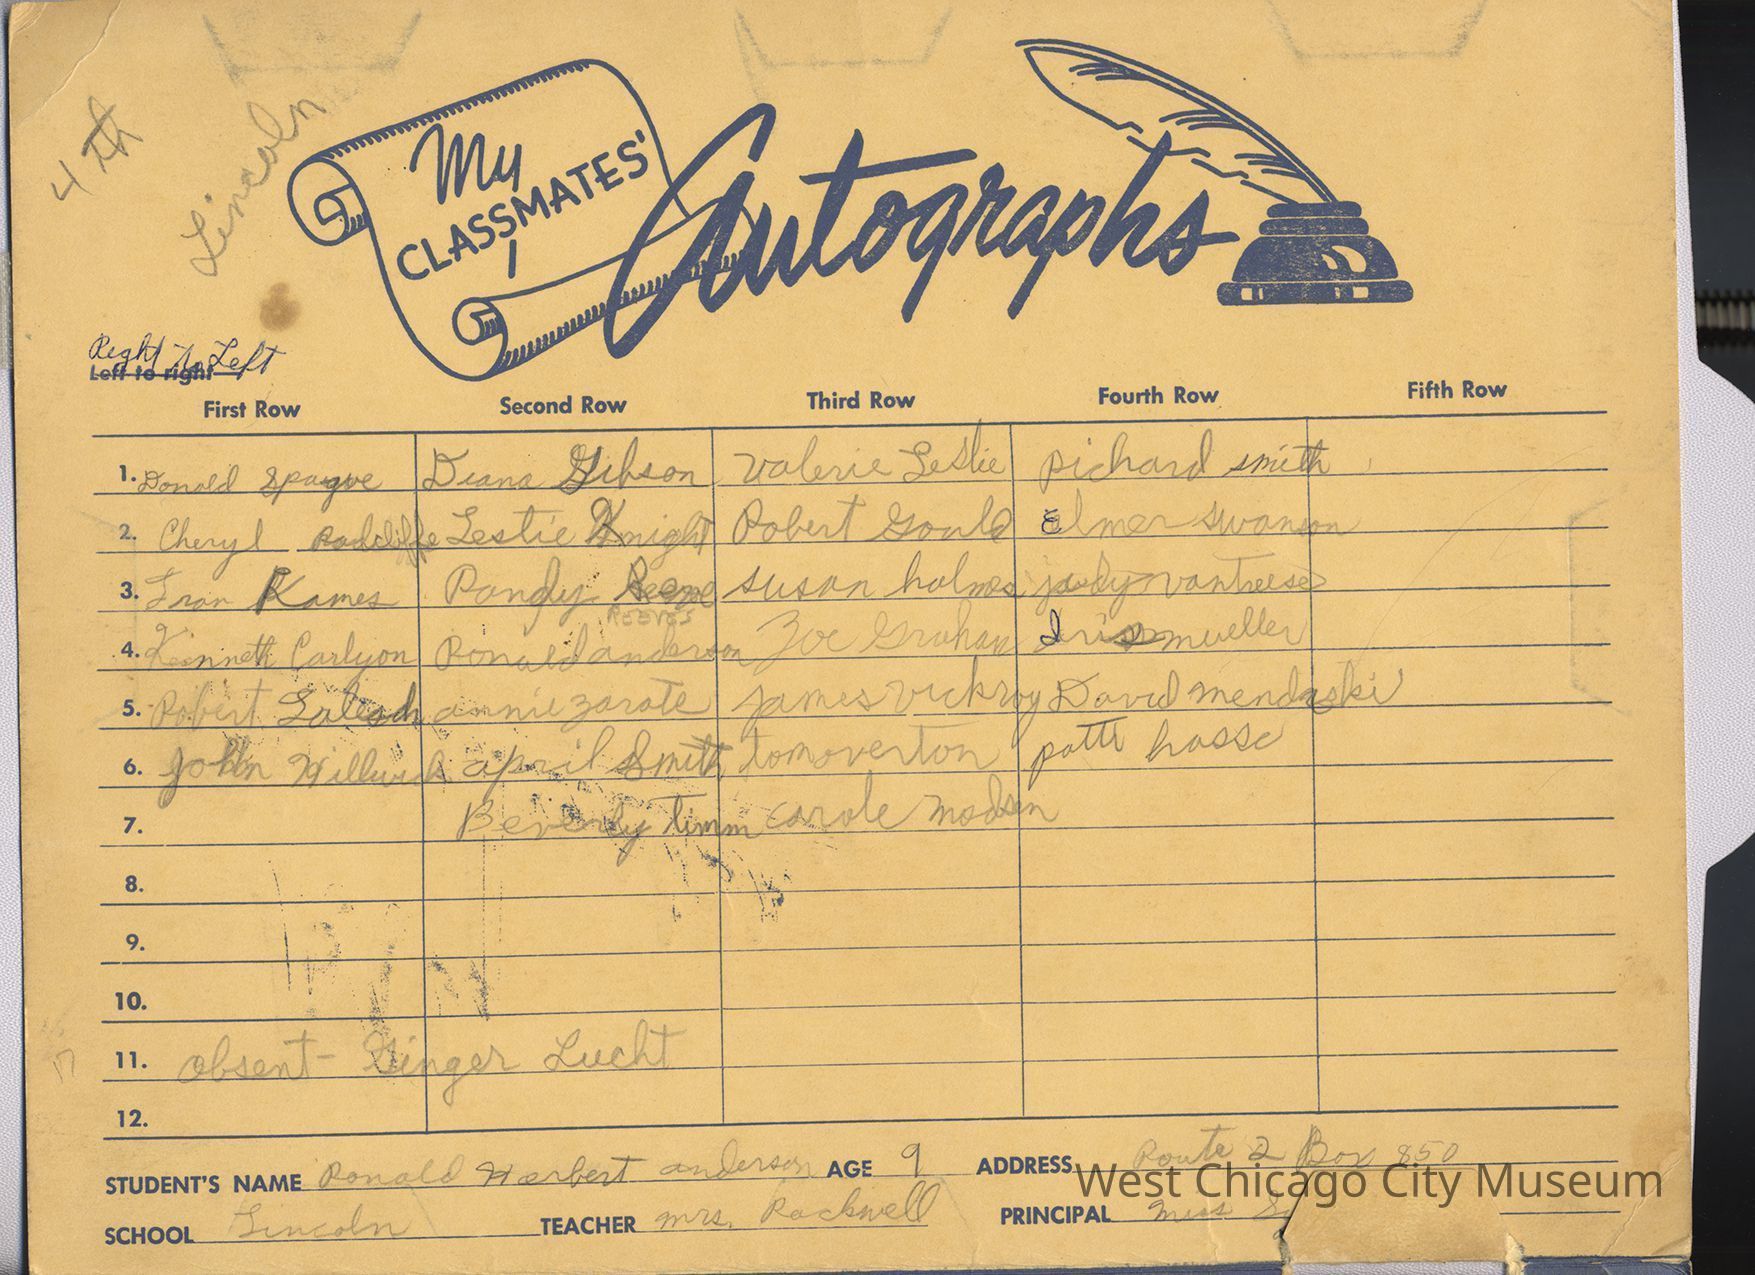 4th
Lincoln
My
CLASSMATES'
Autographs
Right to Left
Left to right
First Row Second Row Third Row Fourth Row Fifth Row
1. Donald Spague Diana Gibson Valerie Leslie Richard smith
2. Cheryl Radcliffe Leslie Knight Robert Gould Elmer Swanson
3. Fran Kames Randy Reeve susan holmes judy vantreese
REEVES
4. Kenneth Carlyon Ronald anderson Zoe Graham Iris mueller
5. Robert annie zarate James Vickroy David mendaski
6. John april Smith tom overton patti hasse
7. Beverly timm carole madsen
8.
9.
10.
11. absent- Ginger Lucht
12.
STUDENT'S NAME Ronald Herbert anderson AGE 9 ADDRESS Route 2 Box 850
West Chicago City Museum
SCHOOL Lincoln TEACHER mrs. Rockwell PRINCIPAL Miss